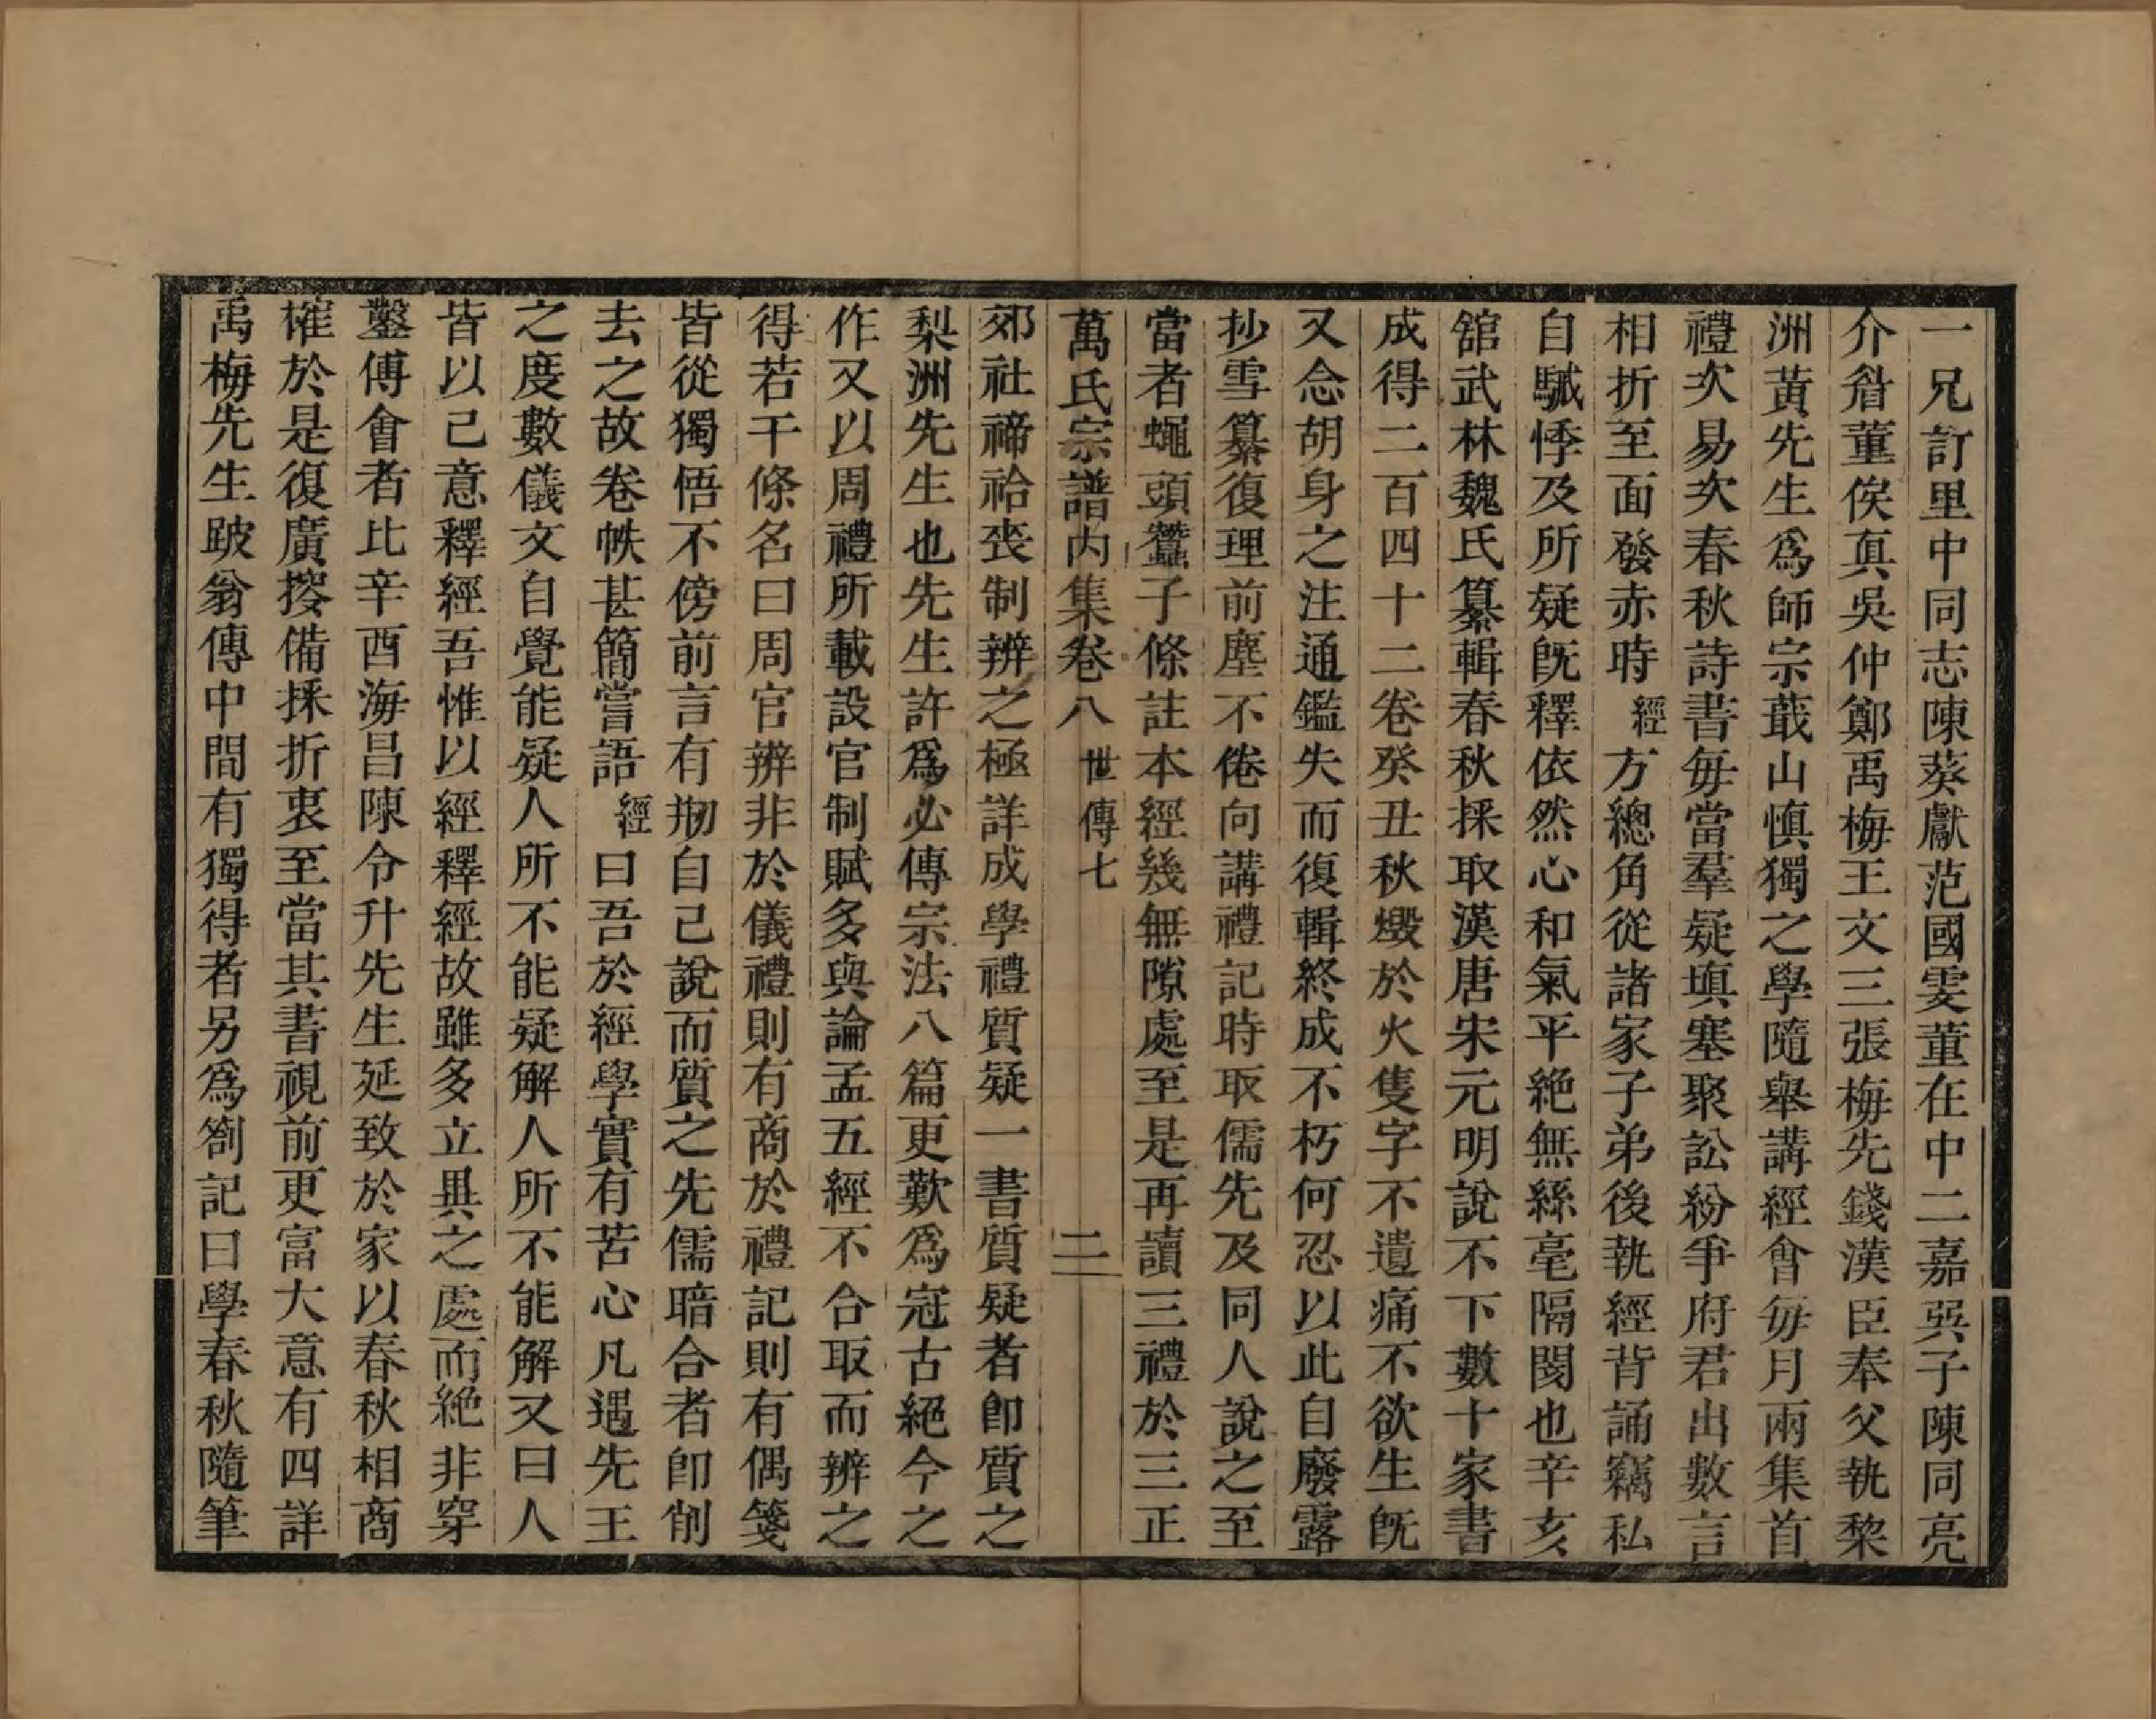 一兄訂里中同志陳葵獻范國雯董在中二嘉吳子陳同亮
介眉董俟真吳仲鄭禹梅王文三張梅先錢漢臣奉父執黎
洲黃先生爲師宗蕺山慎獨之學隨舉講經會每月兩集首
禮次易次春秋詩書每當羣疑塡塞聚訟紛爭府君出數言
相折至面發赤時經方總角從諸家子弟後執經背誦竊私
自駴悸及所疑旣釋依然心和氣平絕無絲毫隔閡也辛亥
舘武林魏氏纂輯春秋採取漢唐宋元明說不下數十家書
成得二百四十二卷癸丑秋燬於火隻字不遺痛不欲生旣
又念胡身之注通鑑失而復輯終成不朽何忍以此自廢露
抄雪纂復理前塵不倦向講禮記時取儒先及同人說之至
當者蠅頭蠶子條註本經幾無隙處至是再讀三禮於三正
萬氏宗譜內集卷八 世傳七 二
郊社禘祫喪制辨之極詳成學禮質疑一書質疑者卽質之
梨洲先生也先生許爲必傳宗法八篇更歎爲冠古絕今之
作又以周禮所載設官制賦多與論孟五經不合取而辨之
得若干條名曰周官辨非於儀禮則有商於禮記則有偶箋
皆從獨悟不傍前言有剏自己說而質之先儒暗合者卽削
去之故卷帙甚簡嘗語經曰吾於經學實有苦心凡遇先王
之度數儀文自覺能疑人所不能疑解人所不能解又曰人
皆以己意釋經吾惟以經釋經故雖多立異之處而絕非穿
鑿傅會者比辛酉海昌陳令升先生延致於家以春秋相商
榷於是復廣搜備採折衷至當其書視前更富大意有四詳
禹梅先生跛翁傳中間有獨得者另爲劄記曰學春秋隨筆